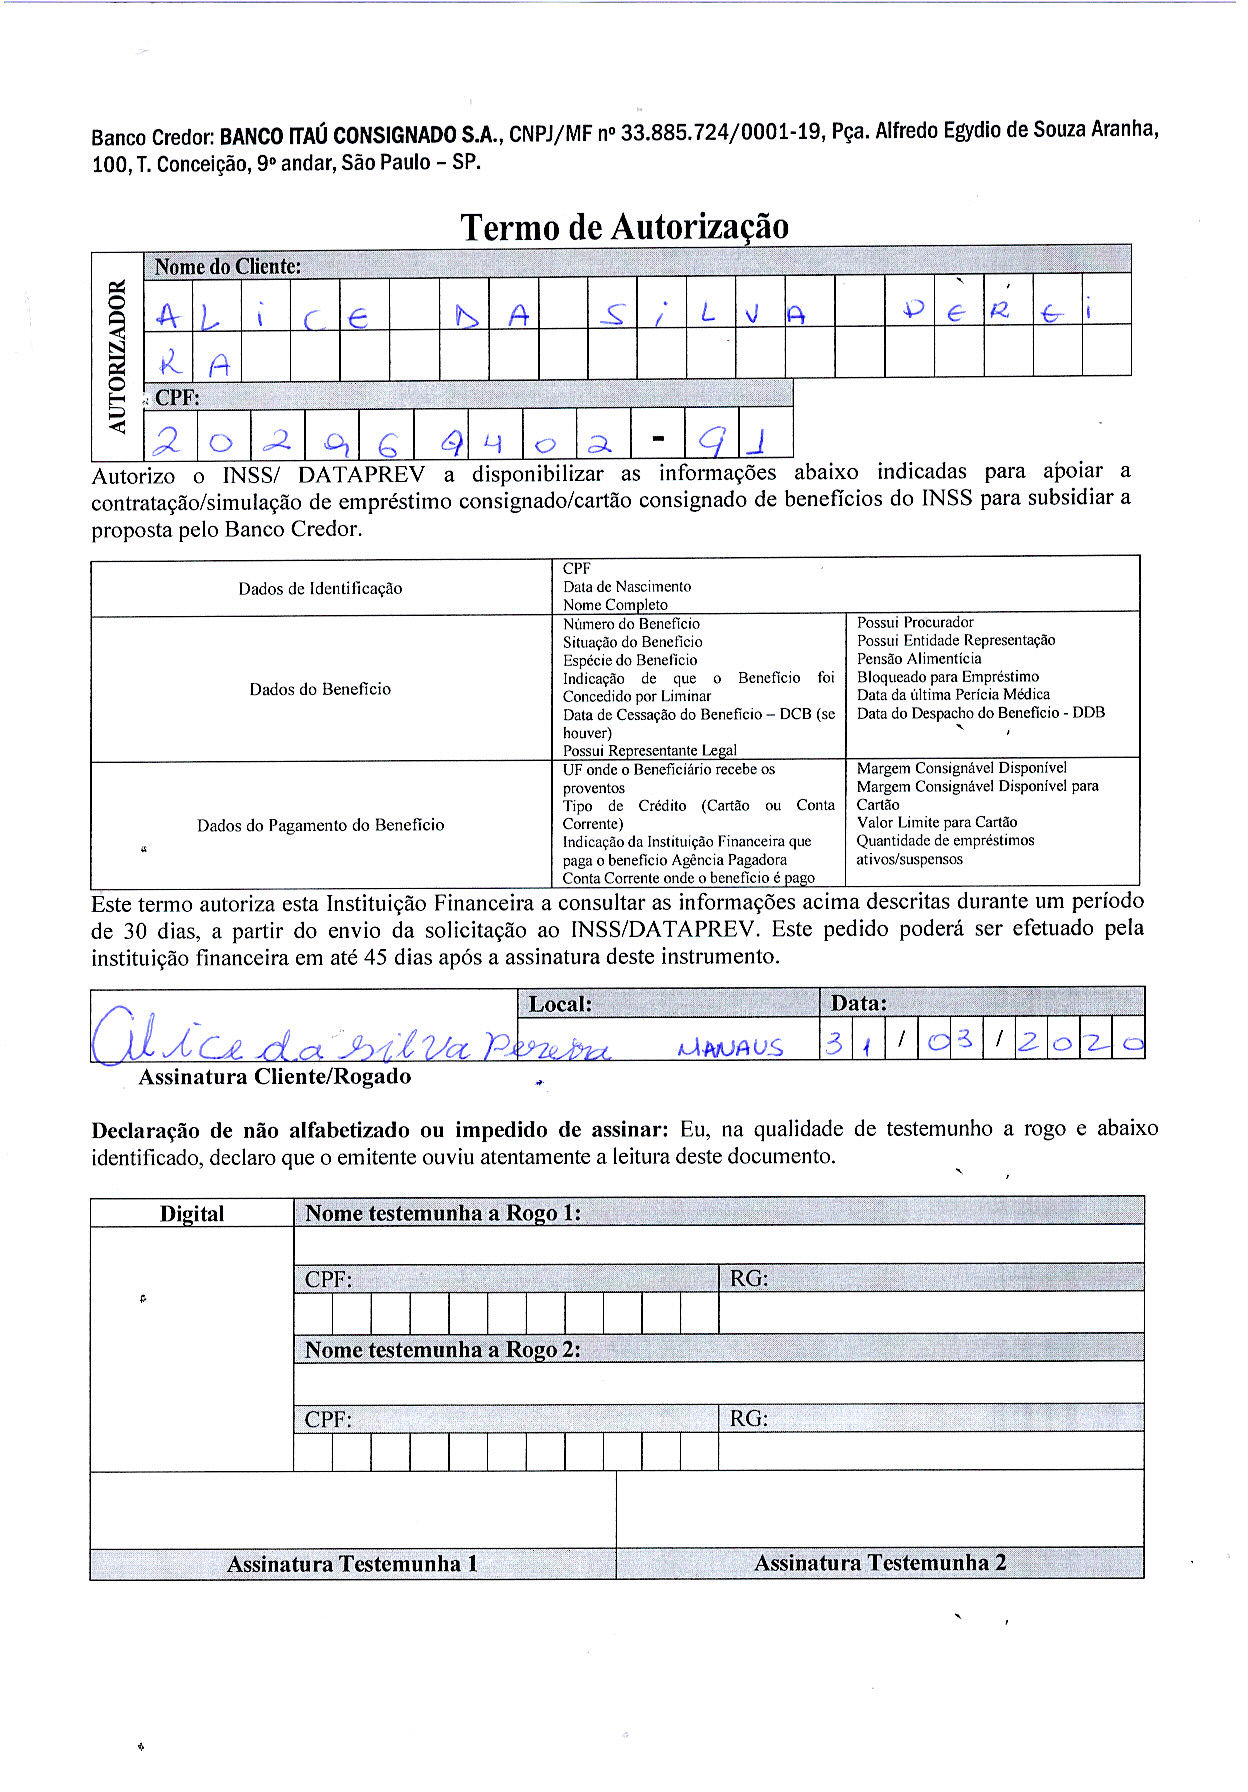 Banco Credor: BANCO ITAÚ CONSIGNADO S.A., CNPJ/MF nº 33.885.724/0001-19, Pça. Alfredo Egydio de Souza Aranha,
100, T. Conceição, 9º andar, São Paulo – SP.
Termo de Autorização
AUTORIZADOR
Nome do Cliente:
ALiCE DA SiLVA PEREi
RA
CPF:
202969402-91
Autorizo o INSS/ DATAPREV a disponibilizar as informações abaixo indicadas para apoiar a
contratação/simulação de empréstimo consignado/cartão consignado de benefícios do INSS para subsidiar a
proposta pelo Banco Credor.
Dados de Identificação
CPF
Data de Nascimento
Nome Completo
Dados do Benefício
Número do Benefício
Situação do Benefício
Espécie do Benefício
Indicação de que o Benefício foi
Concedido por Liminar
Data de Cessação do Benefício – DCB (se
houver)
Possui Representante Legal
Possui Procurador
Possui Entidade Representação
Pensão Alimentícia
Bloqueado para Empréstimo
Data da última Perícia Médica
Data do Despacho do Benefício - DDB
Dados do Pagamento do Benefício
UF onde o Beneficiário recebe os
proventos
Tipo de Crédito (Cartão ou Conta
Corrente)
Indicação da Instituição Financeira que
paga o benefício Agência Pagadora
Conta Corrente onde o benefício é pago
Margem Consignável Disponível
Margem Consignável Disponível para
Cartão
Valor Limite para Cartão
Quantidade de empréstimos
ativos/suspensos
Este termo autoriza esta Instituição Financeira a consultar as informações acima descritas durante um período
de 30 dias, a partir do envio da solicitação ao INSS/DATAPREV. Este pedido poderá ser efetuado pela
instituição financeira em até 45 dias após a assinatura deste instrumento.
Local:
Data:
Alice da Silva Pereira
MANAUS
31/03/2020
Assinatura Cliente/Rogado
Declaração de não alfabetizado ou impedido de assinar: Eu, na qualidade de testemunho a rogo e abaixo
identificado, declaro que o emitente ouviu atentamente a leitura deste documento.
Digital
Nome testemunha a Rogo 1:
CPF:
RG:
Nome testemunha a Rogo 2:
CPF:
RG:
Assinatura Testemunha 1
Assinatura Testemunha 2